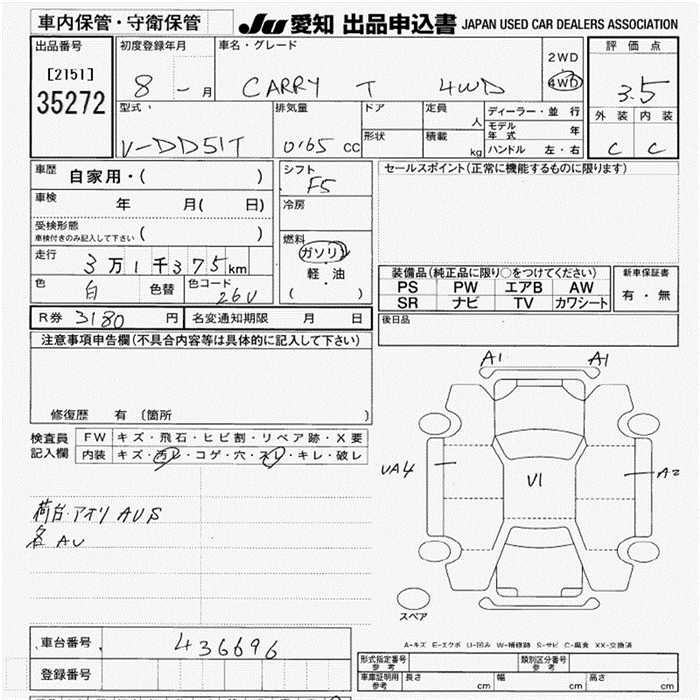 車内保管・守衛保管
JU 愛知 出品申込書 JAPAN USED CAR DEALERS ASSOCIATION
出品番号
[2151]
35272
初度登録年月
8 - 月
車名・グレード
CARRY T 4WD
2WD
4WD
評価点
3.5
外装 内装
C C
型式
V-DD51T
排気量
0.65 CC
ドア
形状
定員
人
積載
kg
ディーラー・並行
モデル年式 年
ハンドル 左・右
車歴
自家用・( )
車検
年 月( 日)
受検形態
車検付きのみ記入して下さい ( )
走行
3万1千375km
色
白
色替
色コード
26U
シフト
F5
冷房
燃料
ガソリン
軽・油
( )
セールスポイント(正常に機能するものに限ります)
装備品(純正品に限り○をつけてください)
PS PW エアB AW
SR ナビ TV カワシート
新車保証書
有・無
R券 3180 円
名変通知期限 月 日
後日品
注意事項申告欄(不具合内容等は具体的に記入して下さい)
修復歴 有 〔箇所 〕
検査員記入欄
FW キズ・飛石・ヒビ割・リペア跡・X要
内装 キズ・汚レ・コゲ・穴・スレ・キレ・破レ
荷台・アオリ AUS
各 AU
A1 A1
UA4
U1
A2
スペア
A-キズ E-エクボ U-凹み W-補修跡 S-サビ C-腐食 XX-交換済
車台番号
436696
登録番号
形式指定番号
参考
類別区分番号
参考
車庫証明用
参考
長さ cm
幅 cm
高さ cm